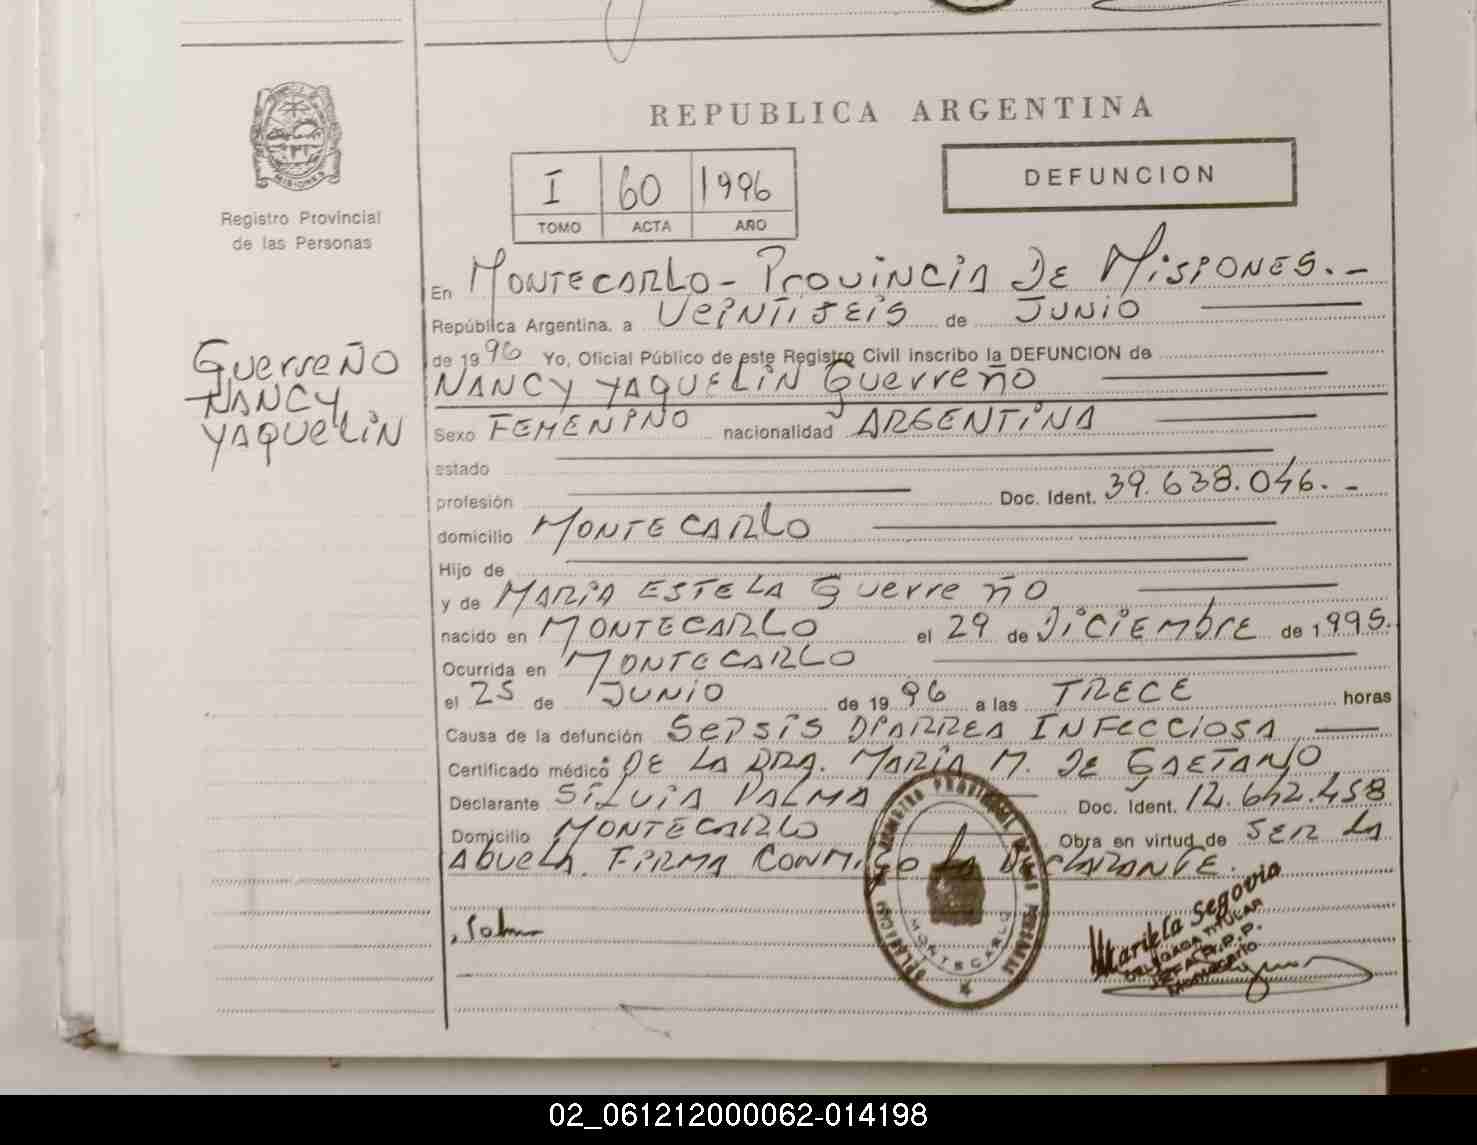 REPUBLICA ARGENTINA
MISIONES
Registro Provincial
de las Personas
I 60 1996
TOMO ACTA AÑO
DEFUNCION
En MONTECARLO - PROVINCIA DE MISIONES. -
República Argentina, a VEINTISEIS de JUNIO
de 1996 Yo, Oficial Público de este Registro Civil inscribo la DEFUNCION de
NANCY YAQUELIN Guerreño
Guerreño
NANCY
YAQUELIN
Sexo FEMENINO nacionalidad ARGENTINA
estado
profesión Doc. Ident. 39.638.046. -
domicilio MONTECARLO
Hijo de
y de MARIA ESTELA Guerreño
nacido en MONTECARLO el 29 de DICIEMBRE de 1995.
Ocurrida en MONTECARLO
el 25 de JUNIO de 1996 a las TRECE horas
Causa de la defunción SEPSIS DIARREA INFECCIOSA
Certificado médico DE LA DRA. MARIA M. DE GAETANO
Declarante SILVIA PALMA Doc. Ident. 12.642.458
Domicilio MONTECARLO Obra en virtud de SER LA
ABUELA. FIRMA CONMIGO LA DECLARANTE.
MONTECARLO
Mariela Segovia
DELEGADA TITULAR
JEFA R.P.P.
Montecarlo
02_061212000062-014198